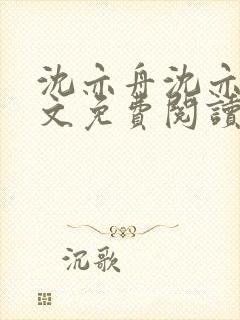 沈亦舟沈亦
文免費閱讀
沉歌